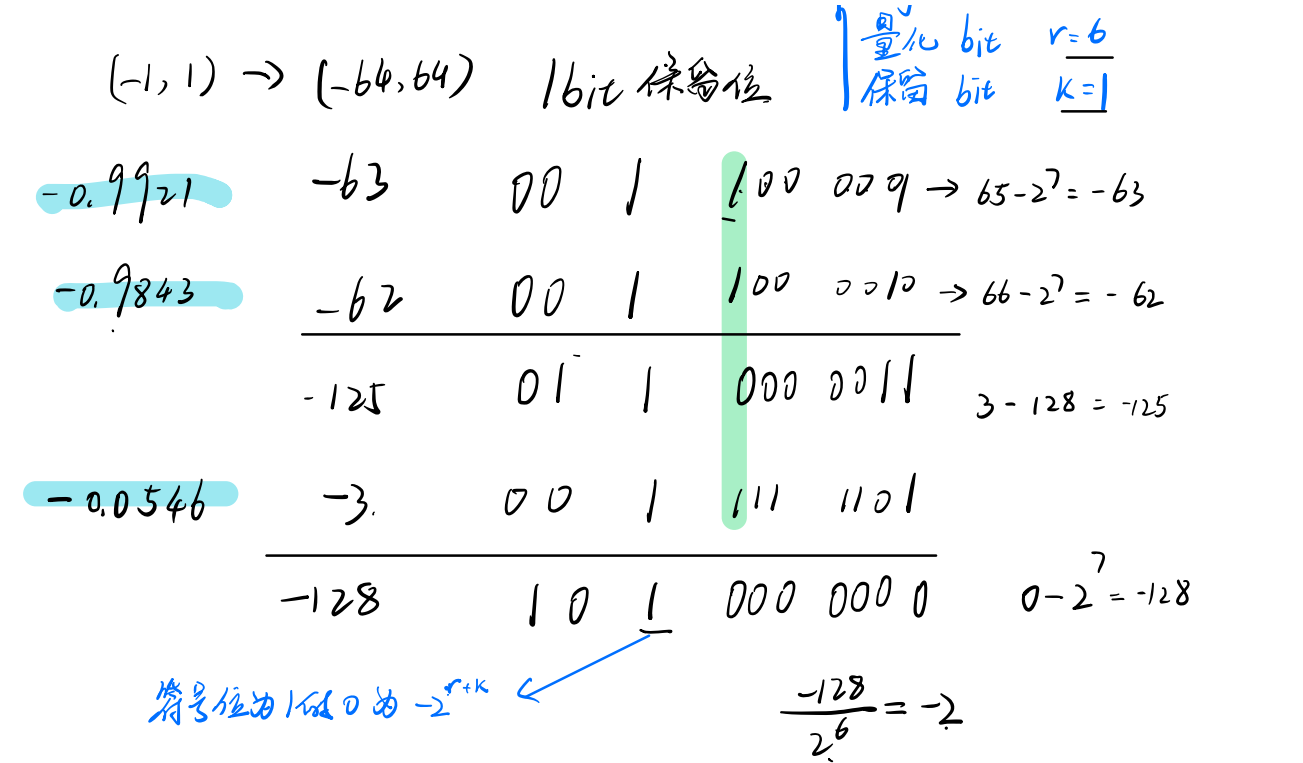 量化 bit r=6
(-1, 1) → (-64, 64) 1bit 保留位
保留 bit K=1
-0.9921 -63 00 1 100 0001 → 65-2^7=-63
-0.9843 -62 00 1 100 0010 → 66-2^7=-62
-125 01 1 000 0011 3-128=-125
-0.0546 -3. 00 1 111 1101
-128 10 1 000 0000 0-2^7=-128
符号位为1的0为 -2^{r+k}
-128/2^6=-2